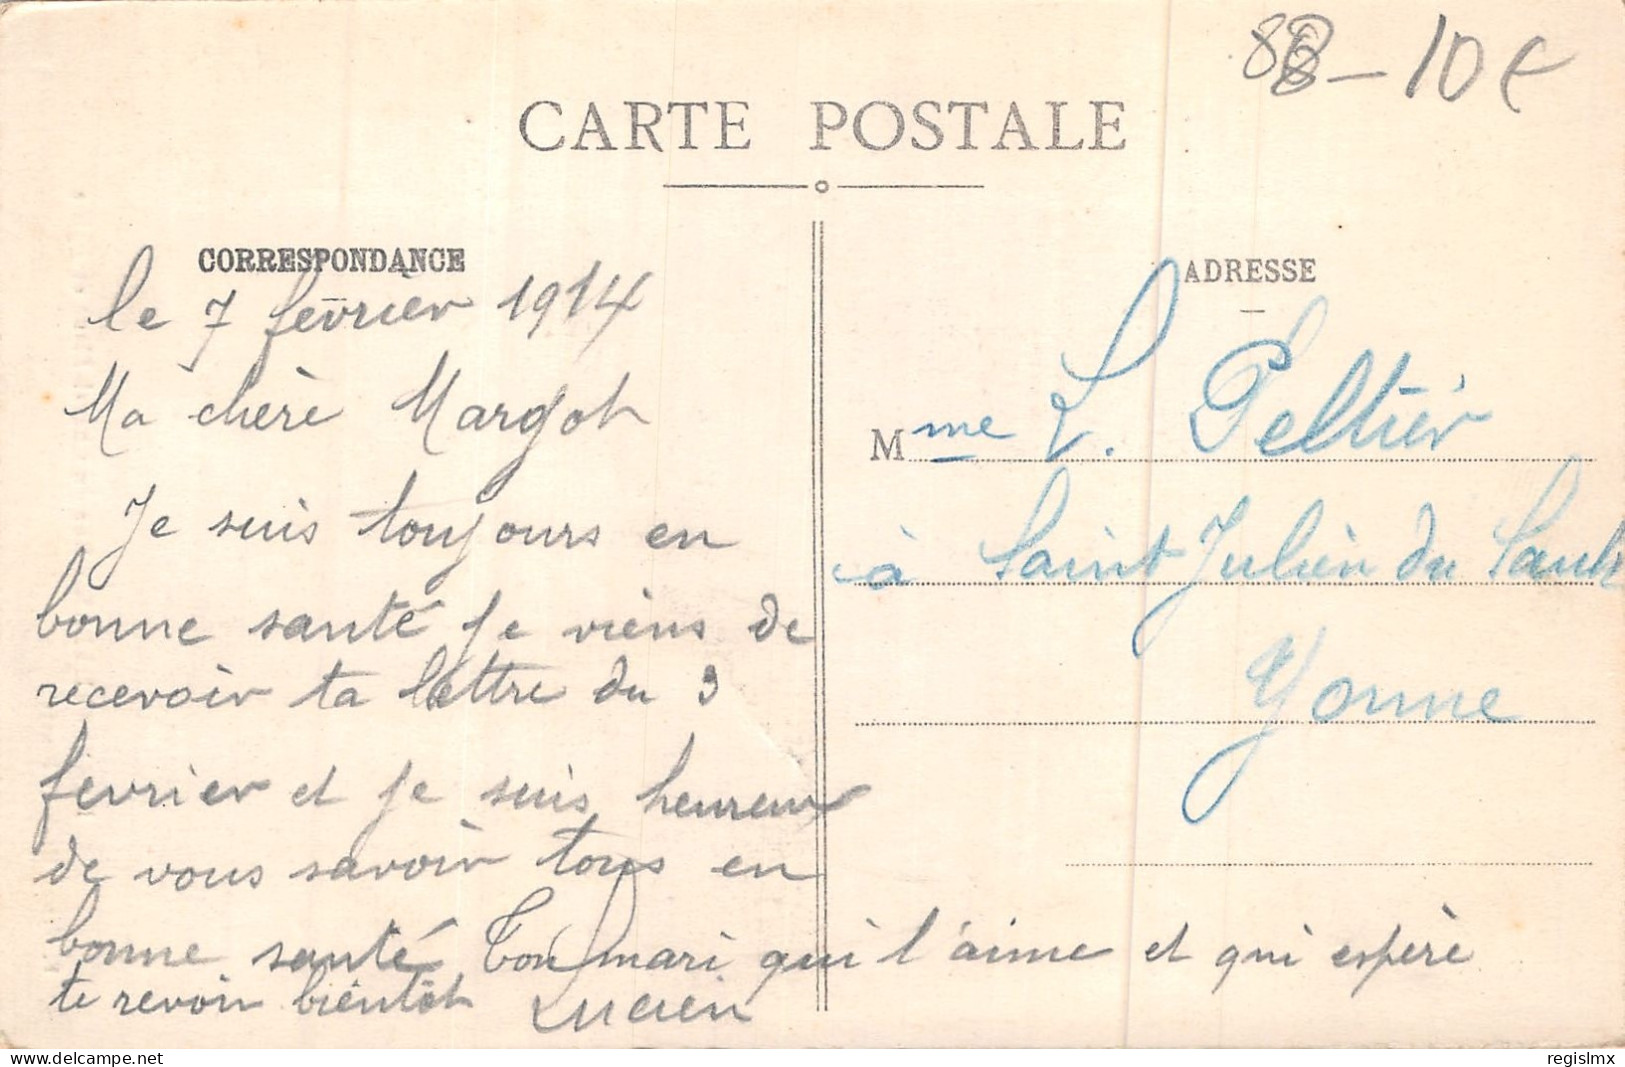 88 - 10 €
CARTE POSTALE
CORRESPONDANCE
le 7 février 1914
Ma chère Margot
Je suis toujours en
bonne santé je viens de
recevoir ta lettre du 3
fevrier et je suis heureux
de vous savoir tous en
bonne santé Ton mari qui t'aime et qui espère
te revoir bientôt Lucien
ADRESSE
Mme L. Peltier
à Saint Julien du Sault
Yonne
regislmx
delcampe.net